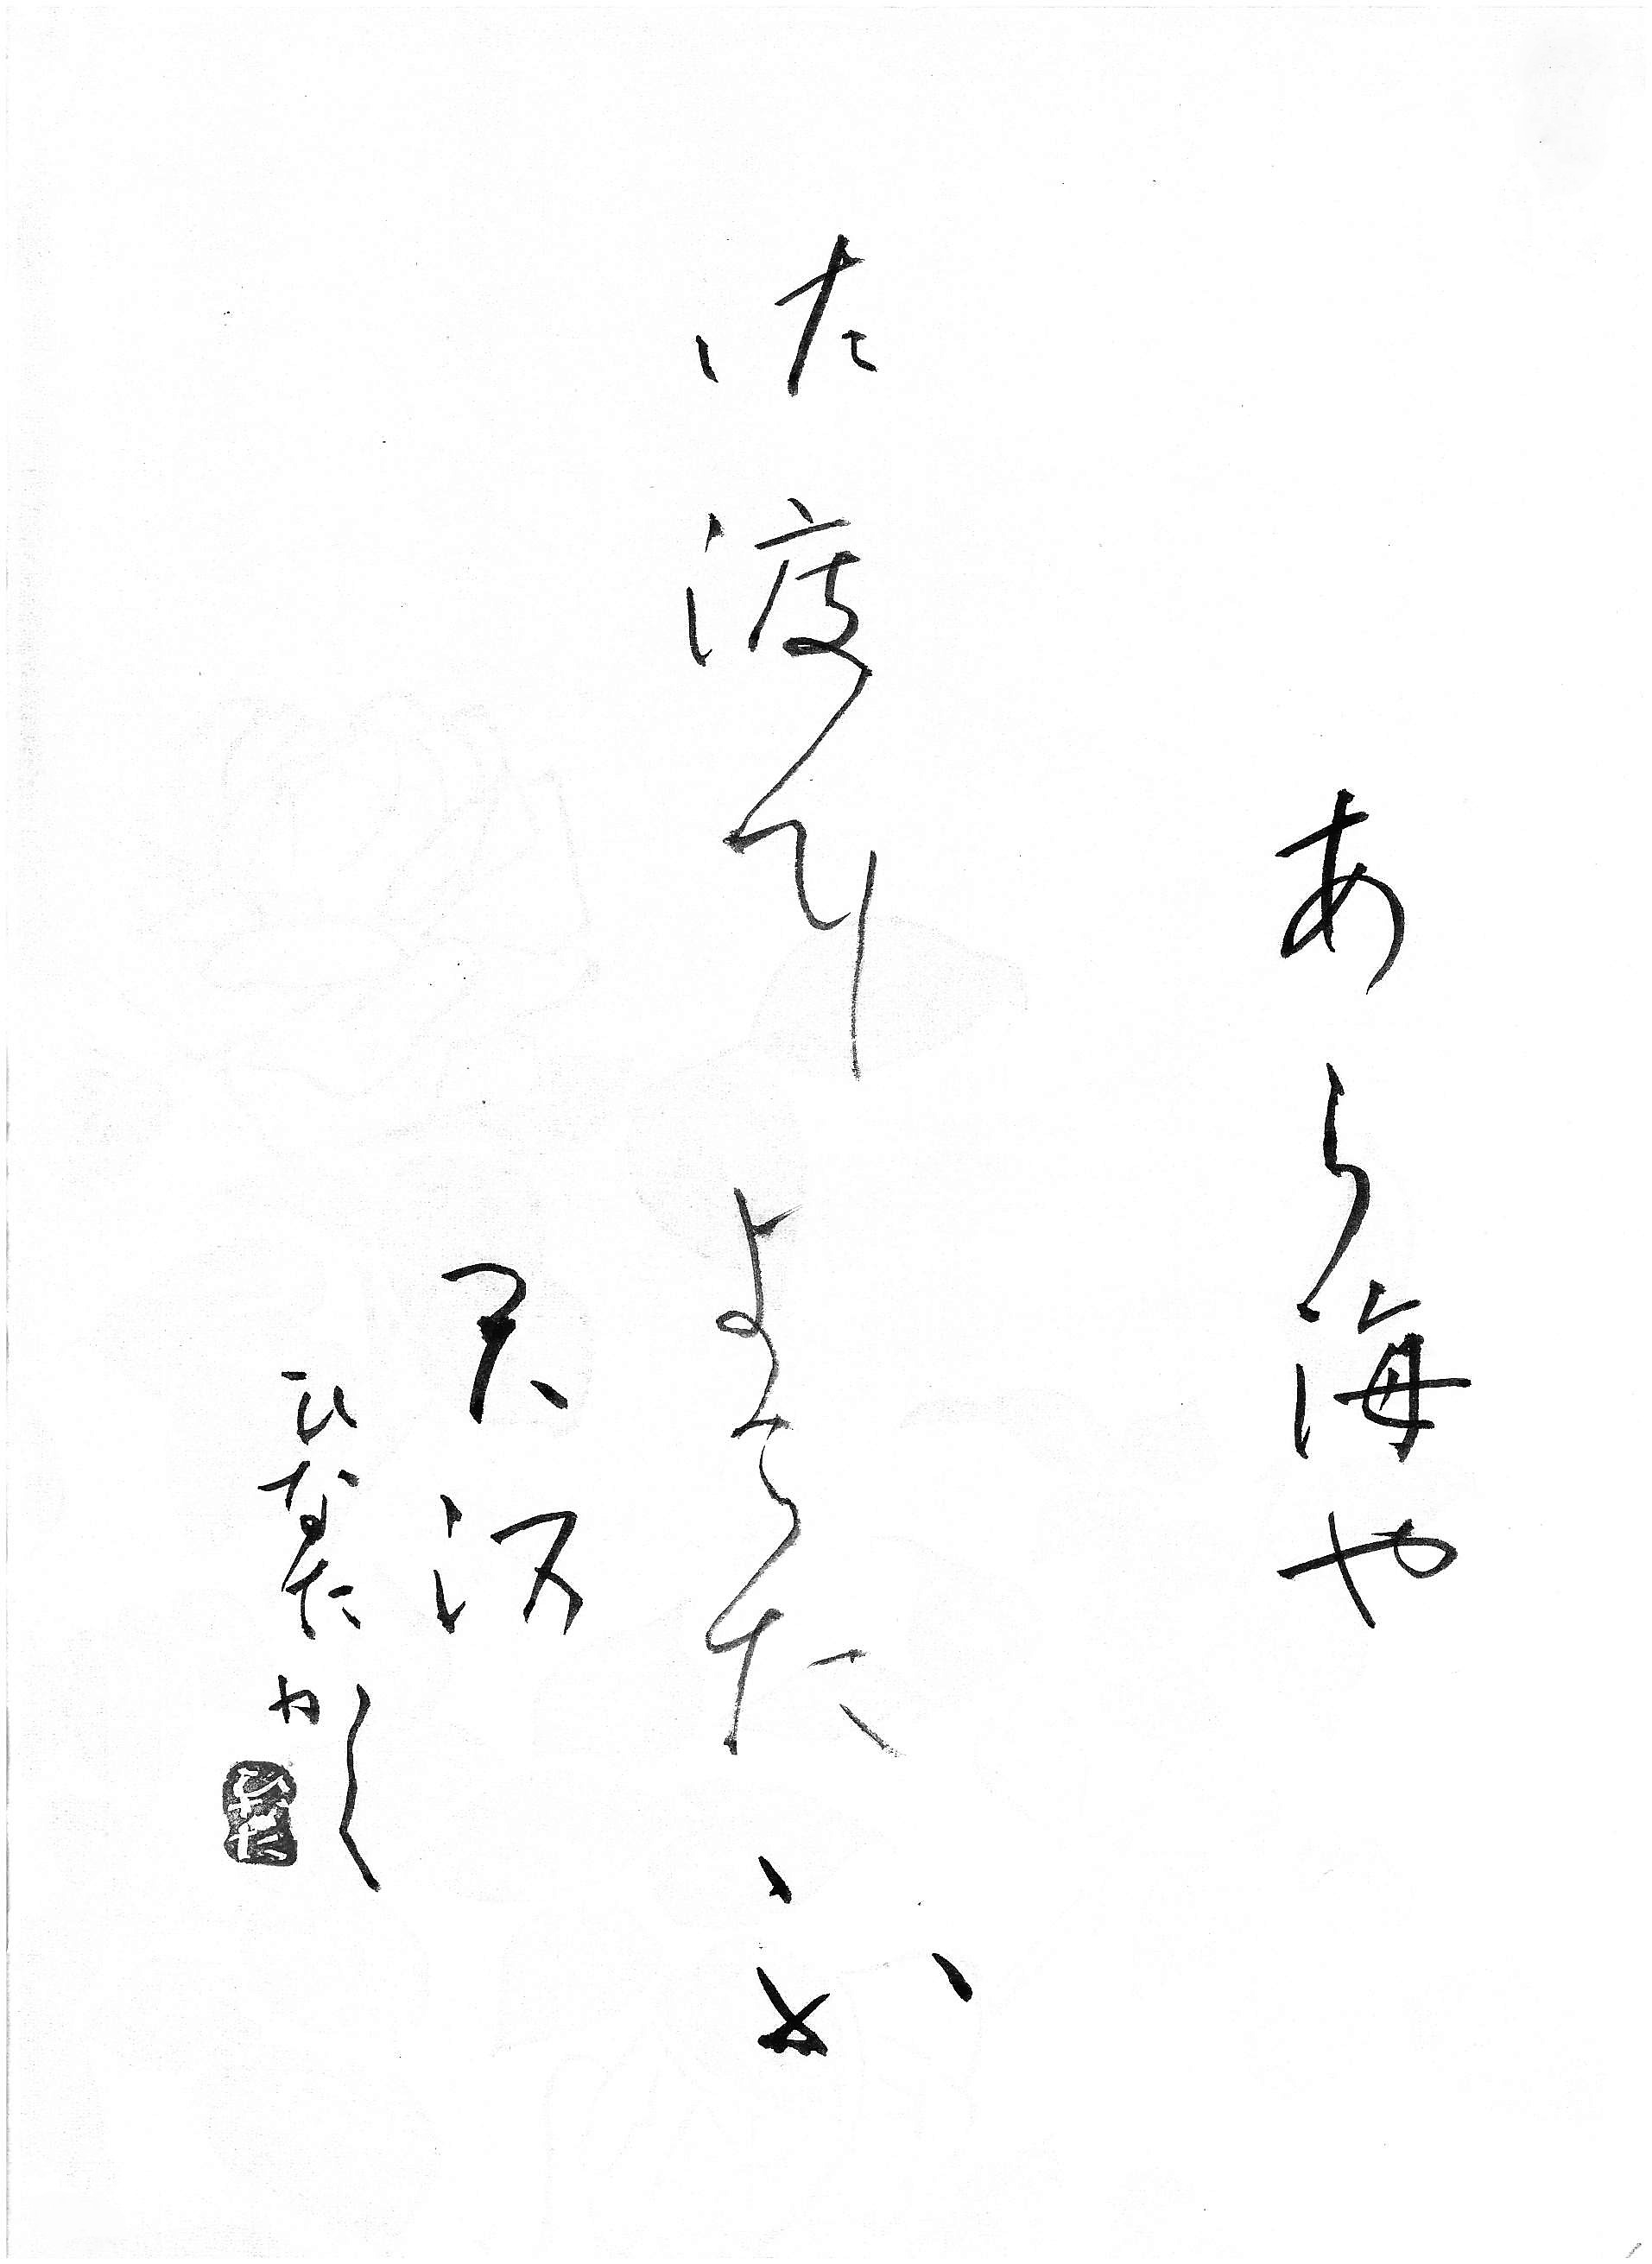 あら海や
佐渡によこたふ
天河
ひなたかく